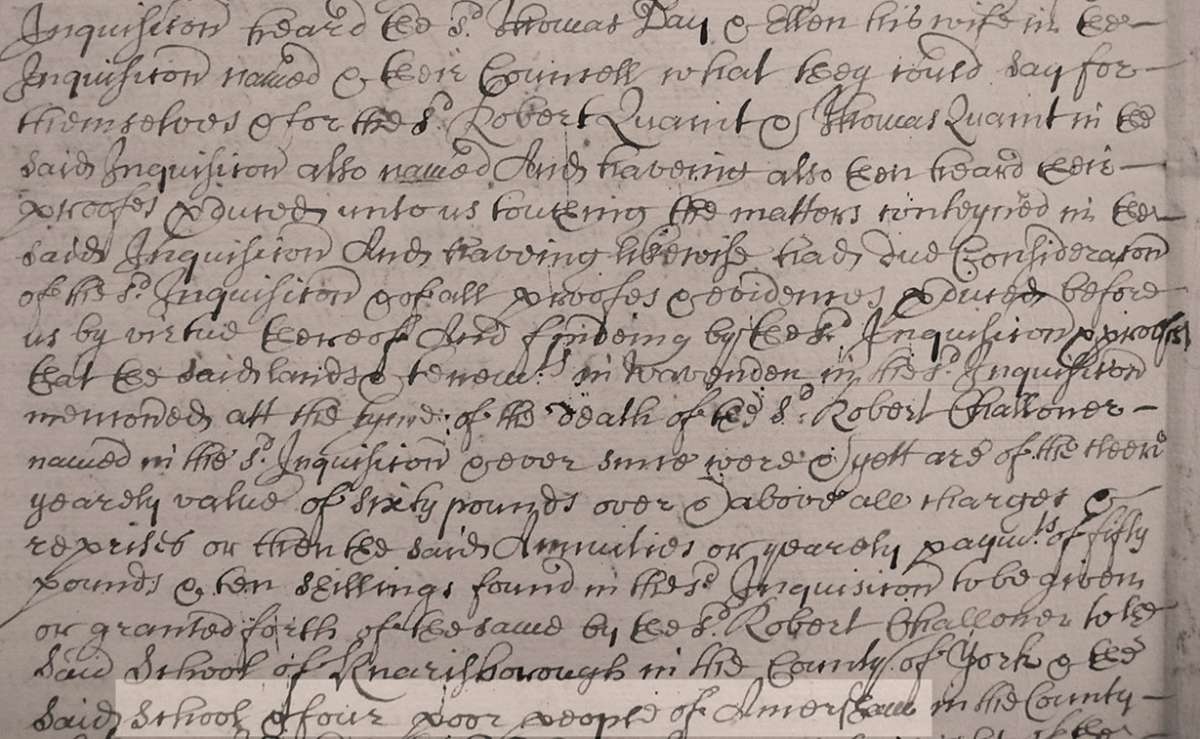 Inquisicon heard the sd. Thomas Day & Ellen his wife in the
Inquisicon named & their Councell what they could say for
themselves & for the sd. Robert Quaint & Thomas Quaint in the
said Inquisicon also named And haveing also then heard their
proofes pduced unto us touching the matters conteyned in the
said Inquisicon And haveing likewise had due Consideracon
of the sd. Inquisicon & of all proofes & evidences pduced before
us by virtue thereof And findeing by the sd. Inquisicon & proofes
that the said lands & tenemts. in Wavenden in the sd. Inquisicon
menconed att the tyme of the death of the sd. Robert Challoner
named in the sd. Inquisicon & ever since were & yett are of the cleere
yearely value of sixty pounds over & above all charges &
reprises or then the said Annuities or yearely paymts. of fifty
pounds & ten shillings found in the sd. Inquisicon to be given
or granted forth of the same by the sd. Robert Challoner to the
said School of Knarisborough in the County of York & the
said School & four poor people of Amersham in the County